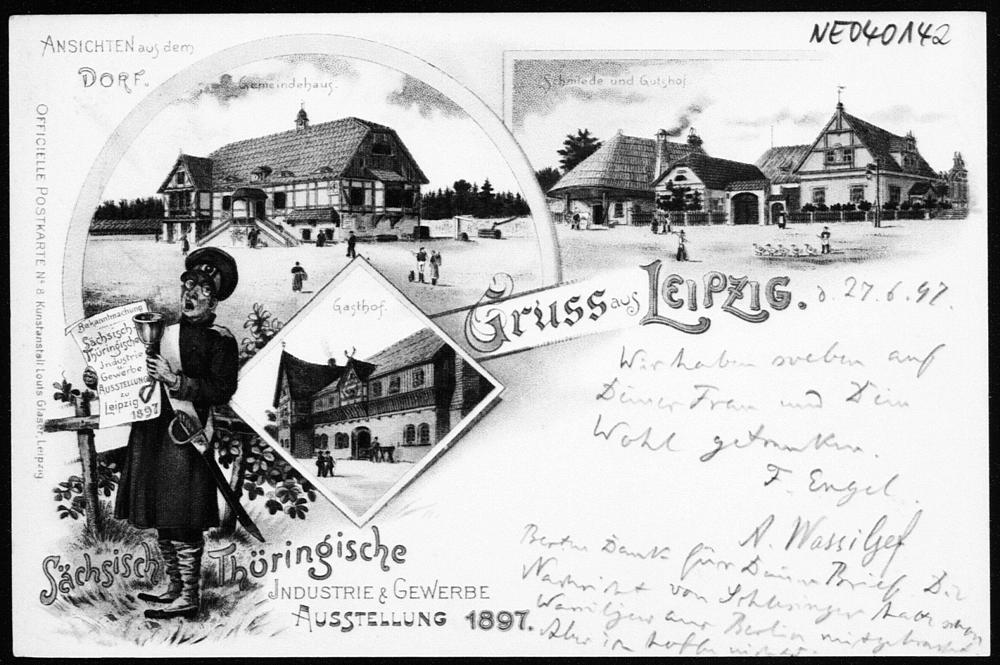 NE040142
ANSICHTEN aus dem
DORF.
Gemeindehaus.
Schmiede und Gutshof.
OFFICIELLE POSTKARTE No 8 Kunstanstalt Louis Glaser, Leipzig
Gasthof.
Gruss aus LEIPZIG. d. 27.6.97.
Bekanntmachung
Sächsisch
Thüringische
Industrie
u.
Gewerbe
AUSSTELLUNG
zu
Leipzig
1897
Wir haben soeben auf
Deiner Frau und Dein
Wohl getrunken.
F. Engel.
A. Wassiljef
Besten Dank für Deinen Brief. Die
Nachricht von Schlesinger hatte schon
Wassiljew aus Berlin mitgebracht
Aber ich hoffe
Sächsisch Thüringische
INDUSTRIE & GEWERBE
AUSSTELLUNG 1897.